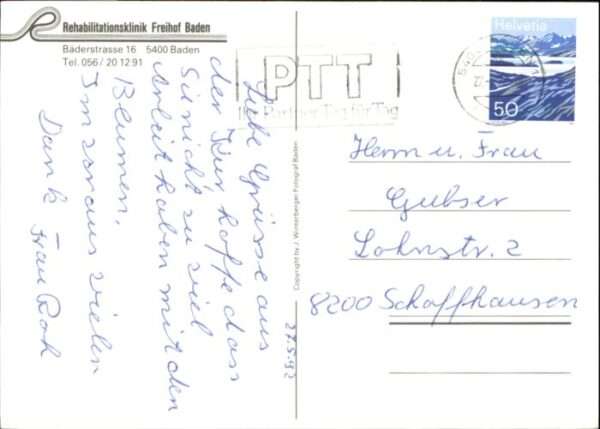 Rehabilitationsklinik Freihof Baden
Bäderstrasse 16 5400 Baden
Tel. 056/20 12 91
Helvetia
50
PTT
Ihr Partner Tag für Tag
Liebe Grüsse aus
der Kur hoffe dass
Sie nicht zu viel
Arbeit haben mit den
Blumen.
Im voraus vielen
Dank Frau Rok
27.5.92
Copyright by J. Winterberger Fotograf Baden
Herrn u. Frau
Gubser
Lohnstr. 2
8200 Schaffhausen